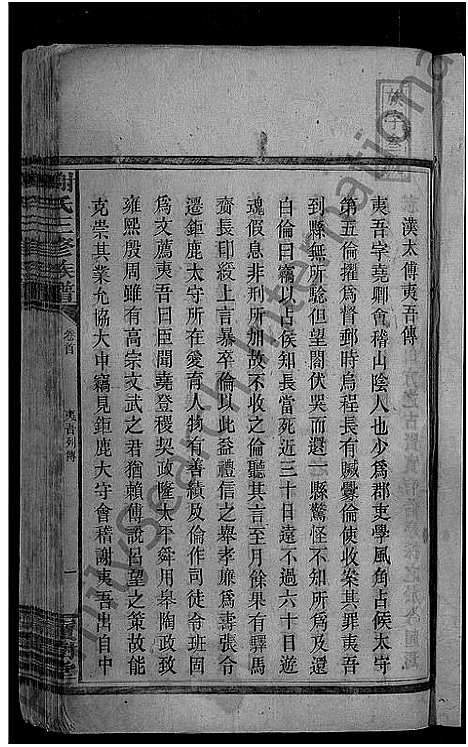 漢太傅夷吾傳
夷吾字堯卿會稽山陰人也少為郡吏學風角占候太守
第五倫擢為督郵時烏程長有贓釁倫使收案其罪夷吾
到縣無所驗但望閤伏哭而還一縣驚怪不知所為及還
白倫曰竊以占候知長當死近三十日遠不過六十日遊
魂假息非刑所加故不收之倫聽其言至月餘果有驛馬
齎長印綬上言暴卒倫以此益禮信之舉孝廉為壽張令
遷鉅鹿太守所在愛育人物有善績及倫作司徒令班固
為文薦夷吾曰臣聞堯登稷契政隆太平舜用皋陶政致
雍熙殷周雖有高宗文武之君猶賴傅說呂望之策故能
克崇其業允協大中竊見鉅鹿大守會稽謝夷吾出自中
謝氏三修族譜
卷首
夷吾列傳
一